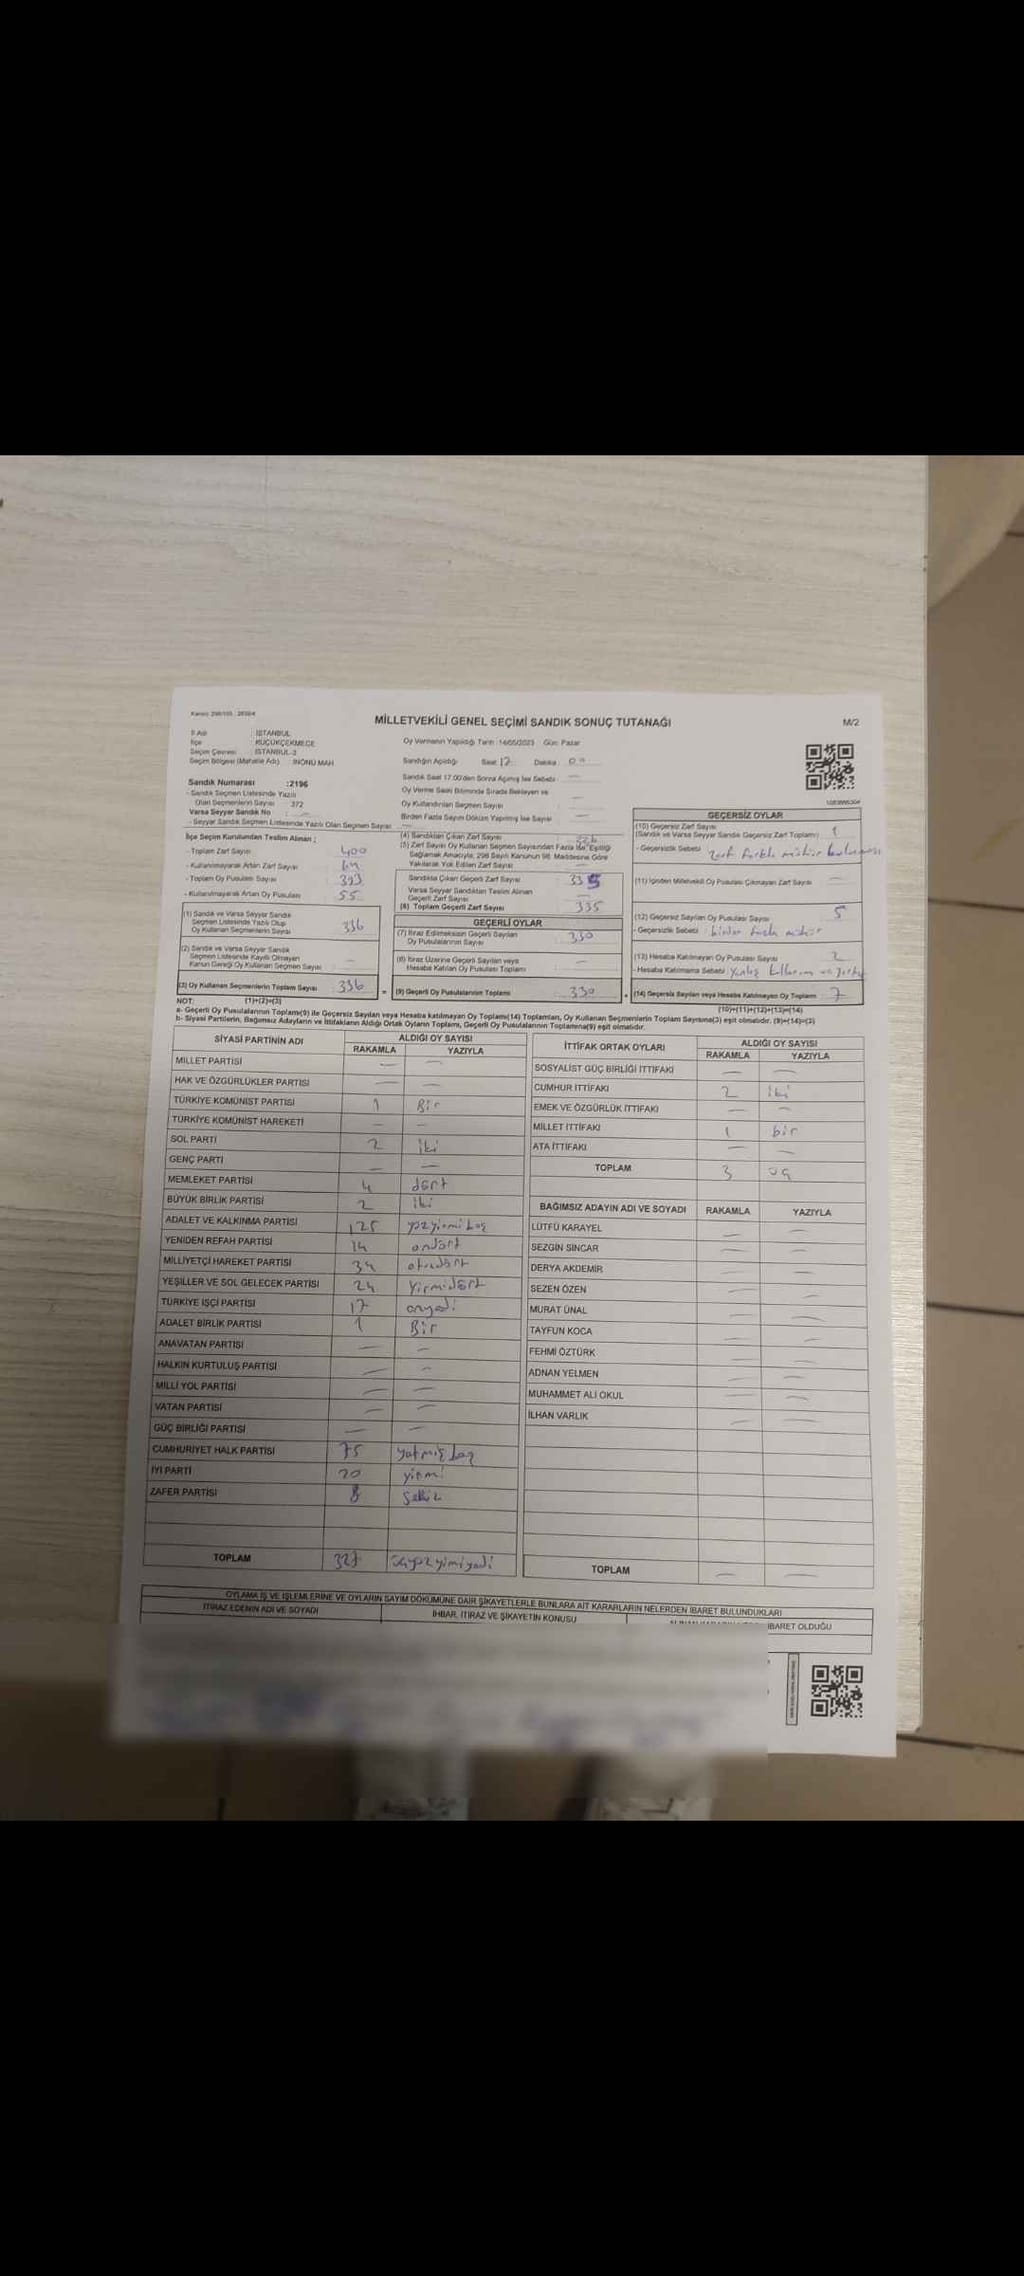 Kanıt: 298/105 : 2839/4
MİLLETVEKİLİ GENEL SEÇİMİ SANDIK SONUÇ TUTANAĞI M/2
İl Adı : İSTANBUL
İlçe : KÜÇÜKÇEKMECE
Seçim Çevresi : İSTANBUL-3
Seçim Bölgesi (Mahalle Adı) : İNÖNÜ MAH
Oy Vermenin Yapıldığı Tarih : 14/05/2023 Gün: Pazar
Sandığın Açıldığı Saat 17 Dakika
Sandık Saat 17:00'den Sonra Açılmış İse Sebebi : —
Oy Verme Saati Bitiminde Sırada Bekleyen ve
Oy Kullandırılan Seçmen Sayısı : —
Birden Fazla Sayım Döküm Yapılmış İse Sayısı : —
Sandık Numarası :2196
- Sandık Seçmen Listesinde Yazılı
Olan Seçmenlerin Sayısı : 372
Varsa Seyyar Sandık No : —
- Seyyar Sandık Seçmen Listesinde Yazılı Olan Seçmen Sayısı : —
İlçe Seçim Kurulundan Teslim Alınan ;
- Toplam Zarf Sayısı : 400
- Kullanılmayarak Artan Zarf Sayısı : 64
- Toplam Oy Pusulası Sayısı : 393
- Kullanılmayarak Artan Oy Pusulası : 55
(1) Sandık ve Varsa Seyyar Sandık
Seçmen Listesinde Yazılı Olup
Oy Kullanan Seçmenlerin Sayısı 336
(2) Sandık ve Varsa Seyyar Sandık
Seçmen Listesinde Kayıtlı Olmayan
Kanun Gereği Oy Kullanan Seçmen Sayısı —
(3) Oy Kullanan Seçmenlerin Toplam Sayısı 336
(4) Sandıktan Çıkan Zarf Sayısı : 336
(5) Zarf Sayısı Oy Kullanan Seçmen Sayısından Fazla İse Eşitliği
Sağlamak Amacıyla, 298 Sayılı Kanunun 98. Maddesine Göre
Yakılarak Yok Edilen Zarf Sayısı : —
Sandıkta Çıkan Geçerli Zarf Sayısı : 335
Varsa Seyyar Sandıktan Teslim Alınan
Geçerli Zarf Sayısı : —
(6) Toplam Geçerli Zarf Sayısı : 335
GEÇERLİ OYLAR
(7) İtiraz Edilmeksizin Geçerli Sayılan
Oy Pusulalarının Sayısı : 330
(8) İtiraz Üzerine Geçerli Sayılan veya
Hesaba Katılan Oy Pusulası Toplamı : —
(9) Geçerli Oy Pusulalarının Toplamı : 330
GEÇERSİZ OYLAR
(10) Geçersiz Zarf Sayısı
(Sandık ve Varsa Seyyar Sandık Geçersiz Zarf Toplamı) : 1
- Geçersizlik Sebebi : zarf farklı mühür bulunması
(11) İçinden Milletvekili Oy Pusulası Çıkmayan Zarf Sayısı : —
(12) Geçersiz Sayılan Oy Pusulası Sayısı : 5
- Geçersizlik Sebebi : birden fazla mühür
(13) Hesaba Katılmayan Oy Pusulası Sayısı : 2
- Hesaba Katılmama Sebebi : yanlış kullanım
(14) Geçersiz Sayılan veya Hesaba Katılmayan Oy Toplamı : 7
NOT: (1)+(2)=(3) (10)+(11)+(12)+(13)=(14)
a- Geçerli Oy Pusulalarının Toplamı(9) ile Geçersiz Sayılan veya Hesaba katılmayan Oy Toplamı(14) Toplamları, Oy Kullanan Seçmenlerin Toplam Sayısına(3) eşit olmalıdır. (9)+(14)=(3)
b- Siyasi Partilerin, Bağımsız Adayların ve İttifakların Aldığı Ortak Oyların Toplamı, Geçerli Oy Pusulalarının Toplamına(9) eşit olmalıdır.
SİYASİ PARTİNİN ADI ALDIĞI OY SAYISI
RAKAMLA YAZIYLA
MİLLET PARTİSİ — —
HAK VE ÖZGÜRLÜKLER PARTİSİ — —
TÜRKİYE KOMÜNİST PARTİSİ 1 Bir
TÜRKİYE KOMÜNİST HAREKETİ — —
SOL PARTİ 2 iki
GENÇ PARTİ — —
MEMLEKET PARTİSİ 4 dört
BÜYÜK BİRLİK PARTİSİ 2 iki
ADALET VE KALKINMA PARTİSİ 125 yüzyirmibeş
YENİDEN REFAH PARTİSİ 14 ondört
MİLLİYETÇİ HAREKET PARTİSİ 34 otuzdört
YEŞİLLER VE SOL GELECEK PARTİSİ 24 Yirmidört
TÜRKİYE İŞÇİ PARTİSİ 17 onyedi
ADALET BİRLİK PARTİSİ 1 Bir
ANAVATAN PARTİSİ — —
HALKIN KURTULUŞ PARTİSİ — —
MİLLİ YOL PARTİSİ — —
VATAN PARTİSİ — —
GÜÇ BİRLİĞİ PARTİSİ — —
CUMHURİYET HALK PARTİSİ 75 yetmişbeş
İYİ PARTİ 20 yirmi
ZAFER PARTİSİ 8 sekiz
TOPLAM 327 üçyüzyirmiyedi
İTTİFAK ORTAK OYLARI ALDIĞI OY SAYISI
RAKAMLA YAZIYLA
SOSYALİST GÜÇ BİRLİĞİ İTTİFAKI — —
CUMHUR İTTİFAKI 2 iki
EMEK VE ÖZGÜRLÜK İTTİFAKI — —
MİLLET İTTİFAKI 1 bir
ATA İTTİFAKI — —
TOPLAM 3 üç
BAĞIMSIZ ADAYIN ADI VE SOYADI RAKAMLA YAZIYLA
LÜTFÜ KARAYEL — —
SEZGİN SİNCAR — —
DERYA AKDEMİR — —
SEZEN ÖZEN — —
MURAT ÜNAL — —
TAYFUN KOCA — —
FEHMİ ÖZTÜRK — —
ADNAN YELMEN — —
MUHAMMET ALİ OKUL — —
İLHAN VARLIK — —
TOPLAM — —
OYLAMA İŞ VE İŞLEMLERİNE VE OYLARIN SAYIM DÖKÜMÜNE DAİR ŞİKAYETLERLE BUNLARA AİT KARARLARIN NELERDEN İBARET BULUNDUKLARI
İTİRAZ EDENİN ADI VE SOYADI İHBAR, İTİRAZ VE ŞİKAYETİN KONUSU İBARET OLDUĞU